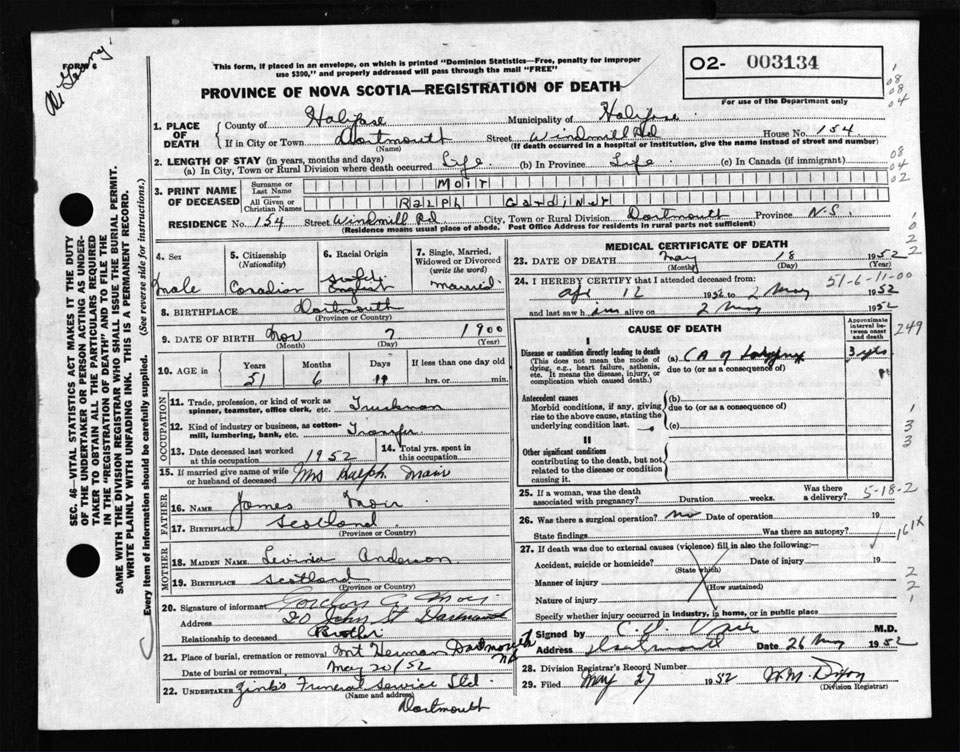 FORM 6
This form, if placed in an envelope, on which is printed "Dominion Statistics—Free, penalty for improper
use $300," and properly addressed will pass through the mail "FREE"
PROVINCE OF NOVA SCOTIA—REGISTRATION OF DEATH
O2- 003134
For use of the Department only
08
08
04
1. PLACE OF DEATH
County of Halifax Municipality of Halifax
If in City or Town Dartmouth Street Windmill Rd House No. 154
(Name) (If death occurred in a hospital or institution, give the name instead of street and number)
2. LENGTH OF STAY (in years, months and days)
(a) In City, Town or Rural Division where death occurred Life (b) In Province Life (c) In Canada (if immigrant)
08
04
02
3. PRINT NAME OF DECEASED
Surname or Last Name Moir
All Given or Christian Names Ralph Gardiner
RESIDENCE No. 154 Street Windmill Rd City, Town or Rural Division Dartmouth Province N.S.
(Residence means usual place of abode. Post Office Address for residents in rural parts not sufficient)
SEC. 46—VITAL STATISTICS ACT MAKES IT THE DUTY
OF THE UNDERTAKER OR PERSON ACTING AS UNDER-
TAKER TO OBTAIN ALL THE PARTICULARS REQUIRED
IN THE "REGISTRATION OF DEATH" AND TO FILE THE
SAME WITH THE DIVISION REGISTRAR WHO SHALL ISSUE THE BURIAL PERMIT.
WRITE PLAINLY WITH UNFADING INK. THIS IS A PERMANENT RECORD.
Every item of information should be carefully supplied. (See reverse side for instructions.)
4. Sex 5. Citizenship (Nationality) 6. Racial Origin 7. Single, Married, Widowed or Divorced (write the word)
Male Canadian English Married
8. BIRTHPLACE Dartmouth
(Province or Country)
9. DATE OF BIRTH Nov 7 1900
(Month) (Day) (Year)
10. AGE in Years Months Days If less than one day old
51 6 11 hrs. or min.
OCCUPATION
11. Trade, profession, or kind of work as
spinner, teamster, office clerk, etc. Truckman
12. Kind of industry or business, as cotton-
mill, lumbering, bank, etc. Transfer
13. Date deceased last worked at this occupation 1952 14. Total yrs. spent in this occupation
15. If married give name of wife
or husband of deceased Mrs Ralph Moir
FATHER
16. NAME James Moir
17. BIRTHPLACE Scotland
(Province or Country)
MOTHER
18. MAIDEN NAME Anderson
19. BIRTHPLACE Scotland
(Province or Country)
20. Signature of informant Gordon G. Moir
Address 20 John St Dartmouth
Relationship to deceased Brother
21. Place of burial, cremation or removal Mt Hermon Dartmouth NS
Date of burial or removal May 20/52
22. UNDERTAKER Zink's Funeral Service Ltd.
(Name and address)
Dartmouth
MEDICAL CERTIFICATE OF DEATH
23. DATE OF DEATH May 18 1952
(Month) (Day) (Year)
51-6-11-00
24. I HEREBY CERTIFY that I attended deceased from:
Apr 12 to 2 May 1952
and last saw him alive on 2 May 1952
CAUSE OF DEATH
Approximate interval between onset and death
I
Disease or condition directly leading to death
(This does not mean the mode of
dying, e.g., heart failure, asthenia,
etc. It means the disease, injury, or
complication which caused death.)
(a) CA of Larynx
due to (or as a consequence of)
Antecedent causes
Morbid conditions, if any, giving
rise to the above cause, stating the
underlying condition last.
(b)
due to (or as a consequence of)
(c)
II
Other significant conditions
contributing to the death, but not
related to the disease or condition
causing it.
249
25. If a woman, was the death
associated with pregnancy? Duration weeks. Was there a delivery?
5-18-2
26. Was there a surgical operation? no Date of operation 19
State findings Was there an autopsy?
161X
27. If death was due to external causes (violence) fill in also the following:—
Accident, suicide or homicide? Date of injury 19
(State which)
Manner of injury
(How sustained)
Nature of injury
Specify whether injury occurred in industry, in home, or in public place
Signed by M.D.
Address Dartmouth Date 26 May 1952
28. Division Registrar's Record Number
29. Filed May 27 1952 W.M. Dixon
(Division Registrar)